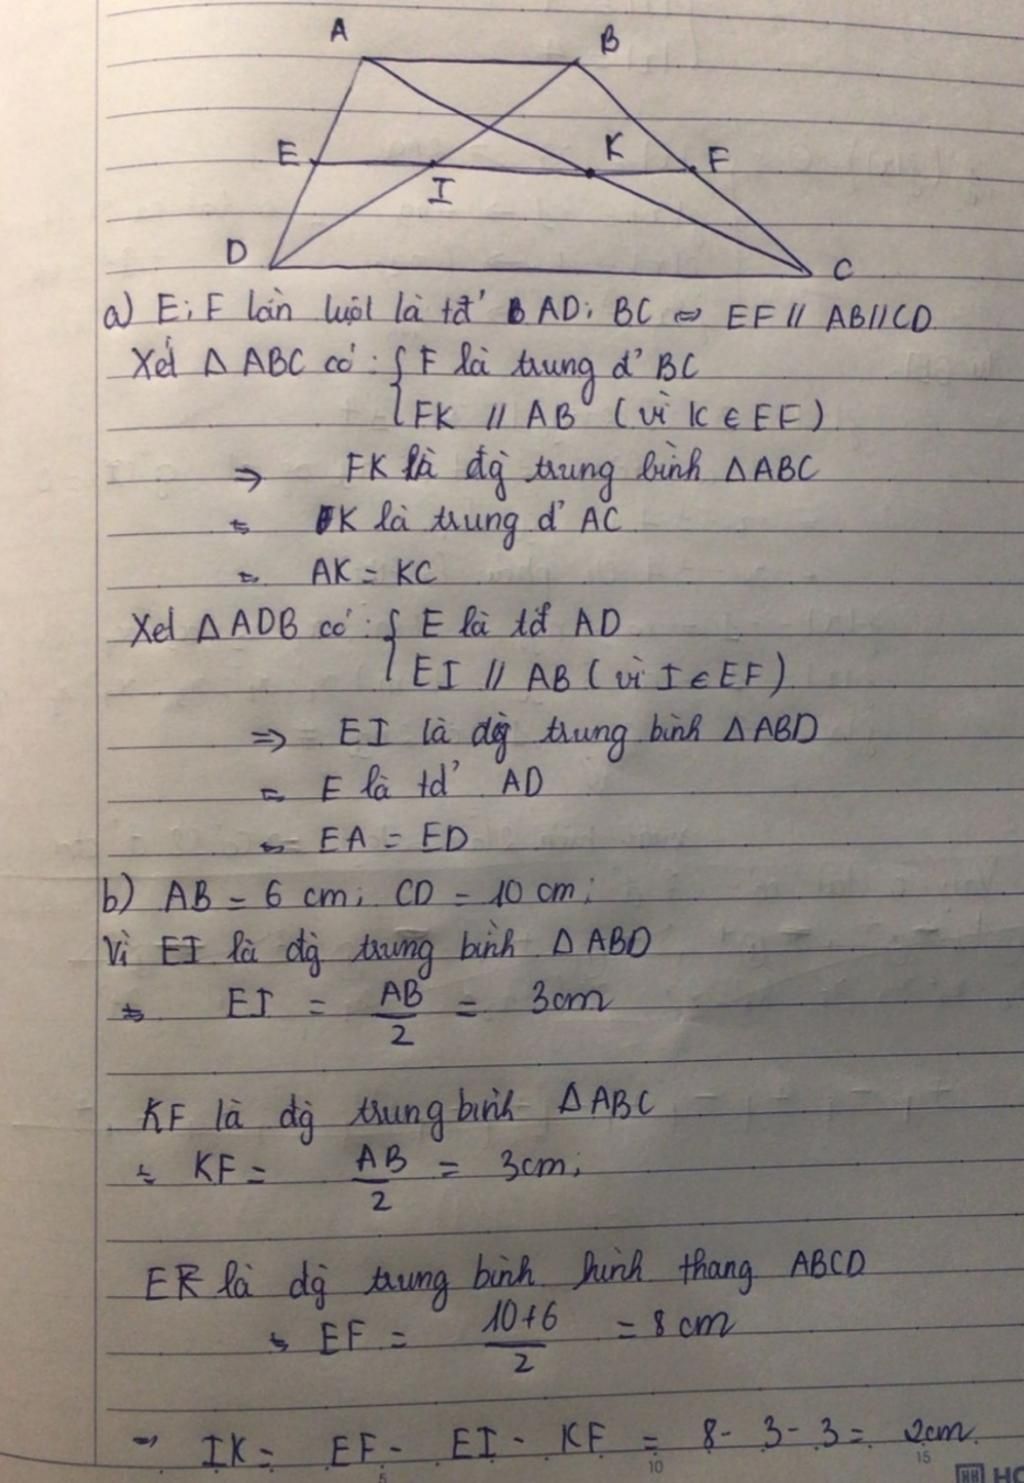 A
B
E
I
K
F
D
C
a) E; F lần lượt là tđ' AD; BC ⇔ EF // AB // CD
Xét Δ ABC có : { F là trung đ' BC
FK // AB (vì K ∈ EF)
⇒ FK là đg̀ trung bình Δ ABC
⇒ K là trung đ' AC
⇒ AK = KC
Xét Δ ADB có : { E là tđ' AD
EI // AB (vì I ∈ EF)
⇒ EI là đg̀ trung bình Δ ABD
⇒ E là tđ' AD
⇒ EA = ED
b) AB = 6 cm; CD = 10 cm;
Vì EI là đg̀ trung bình Δ ABD
⇒ EI = AB/2 = 3cm
KF là đg̀ trung bình Δ ABC
⇒ KF = AB/2 = 3cm;
EF là đg̀ trung bình hình thang ABCD
⇒ EF = 10+6/2 = 8 cm
⇒ IK = EF - EI - KF = 8 - 3 - 3 = 2cm
5 10 15